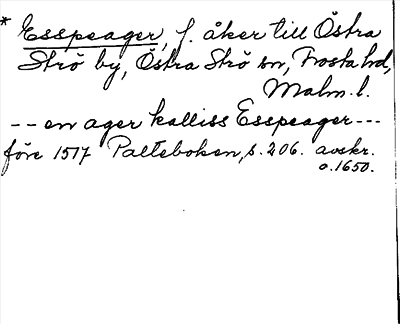 * Esspeager, f. åker till Östra
Strö by, Östra Strö sn, Frosta hd,
Malm. l.
-- en ager kalliss Esspeager ---
före 1517 Palteboken, s. 206. avskr.
o. 1650.